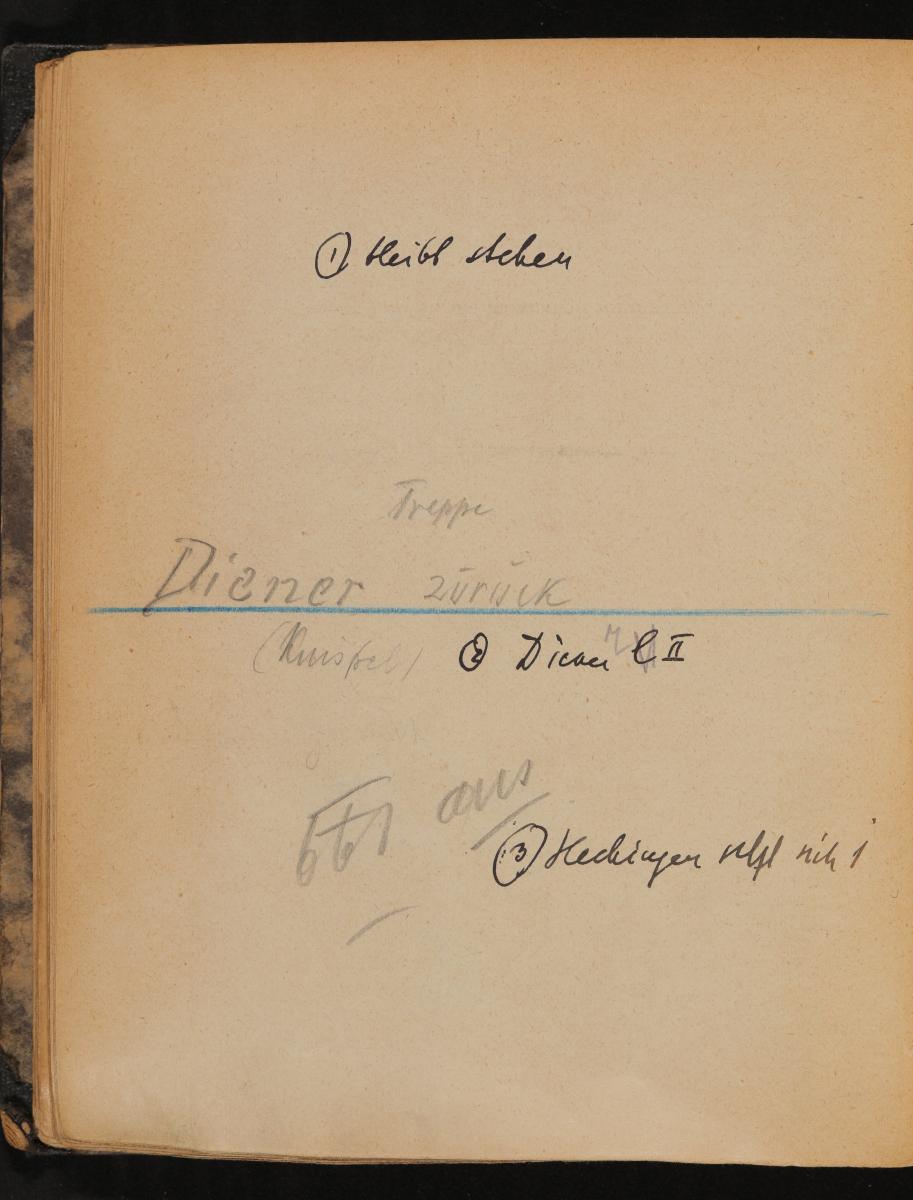 ① bleibt stehen
Treppe
Diener zurück
② Diener l II
aus
③ Hechingen setzt sich 1